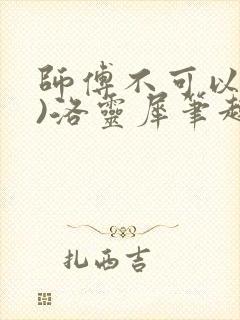 師傅不可以
)洛靈犀筆趣
扎西吉